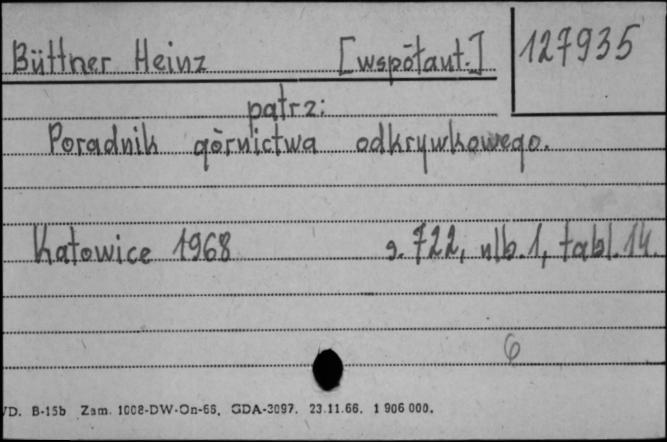 Büttner Heinz [współaut.] 127935
patrz:
Poradnik górnictwa odkrywkowego.
Katowice 1968 s. 722, nlb. 1, tabl. 14.
6
D. B-15b Zam. 1008-DW-On-66. GDA-3097. 23.11.66. 1 906 000.